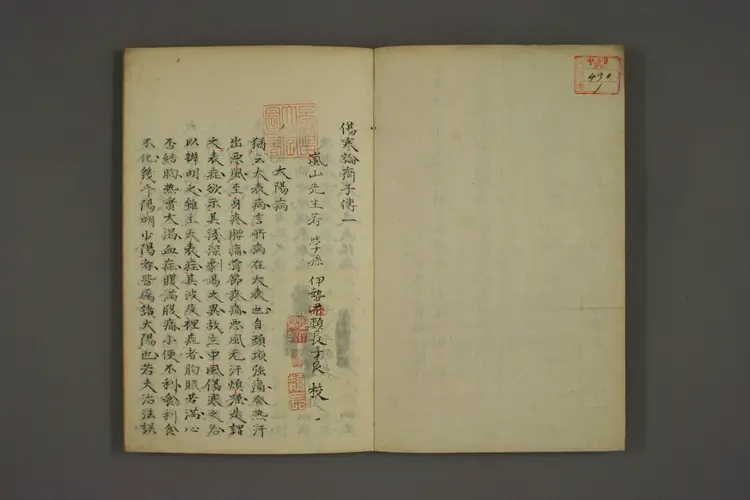 傷寒論齊子傳一
嵐山先生著 孫 伊勢 類長子良 校
太陽病
猶云大表病言所病在大表也自頭項強痛發熱汗
出惡風至身疼腰痛骨節疼痛惡風无汗煩躁是謂
大表症欲示其淺深劇易大異故立中風傷寒之名
以辨明之雖主大表症其波及裡症者胸脇苦滿心
否結胸熱實大渴血症腹滿腹痛小便不利食利食
不化幾乎陽明少陽者皆屬諸太陽也若夫治法誤
490
1